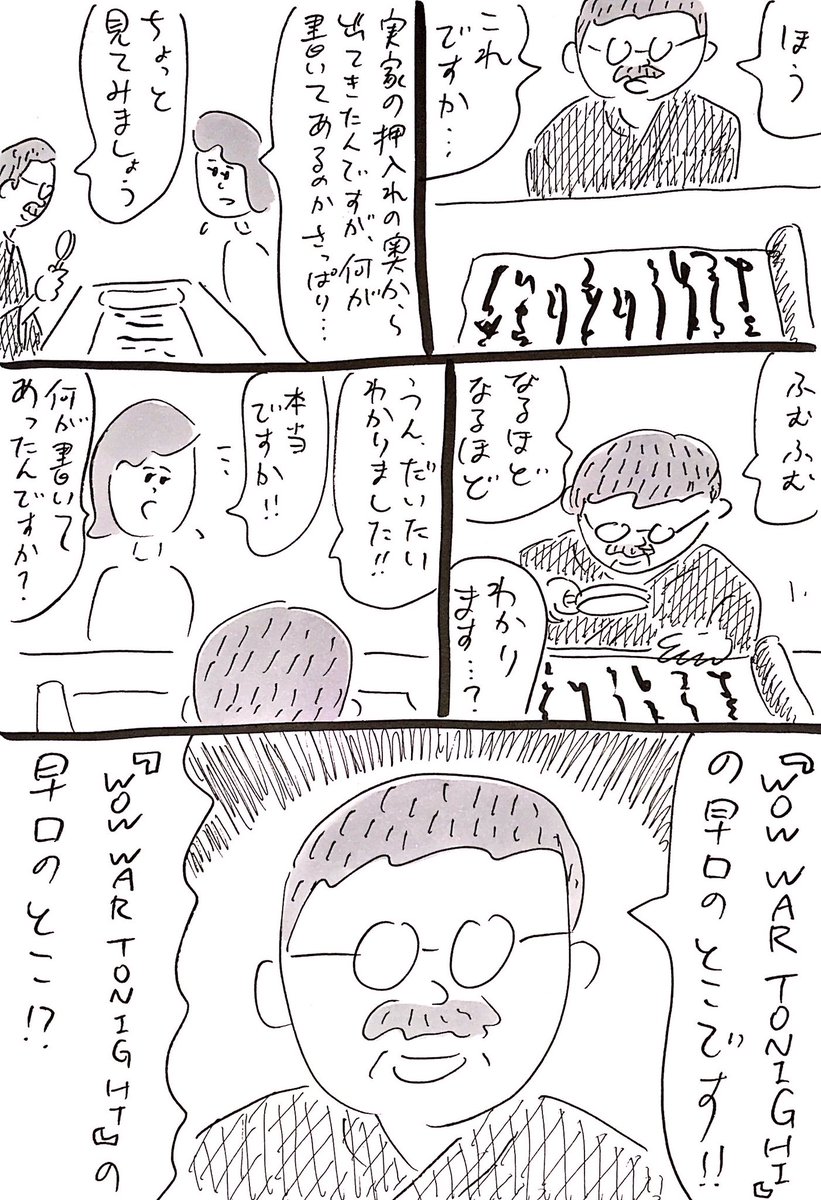 ほう
これ
ですか…
実家の押入れの奥から
出てきたんですが、何が
書いてあるのかさっぱり…
ちょっと
見てみましょう
ふむふむ
なるほど
なるほど
わかり
ます…？
うん、だいたい
わかりました!!
本当
ですか!!
何が書いて
あったんですか？
『WOW WAR TONIGHT』
の早口のとこです!!
『WOW WAR TONIGHT』の
早口のとこ!?